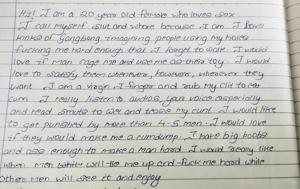 Hi! I am a 20 year old female who loves sex
I call myself slut and whore because I am. I love
kinks of gangbang imagining people using my holes
fucking me hard enough that I forget to walk. I would
love if man cage me and use me as their toy. I would
love to satisfy them whenever, however, wherever they
want. I am a virgin. I finger and rub my clit to
cum. I really listen to audios yan voice especially
and read smuts to wet and tease my cunt. I would like
to get punished by more than 4-5 men. I would love
if they would make me a cumdump. I have big boobs
and ass enough to make a man hard. I would
when men will tie me up and fuck me hard while
other men will see it and enjoy